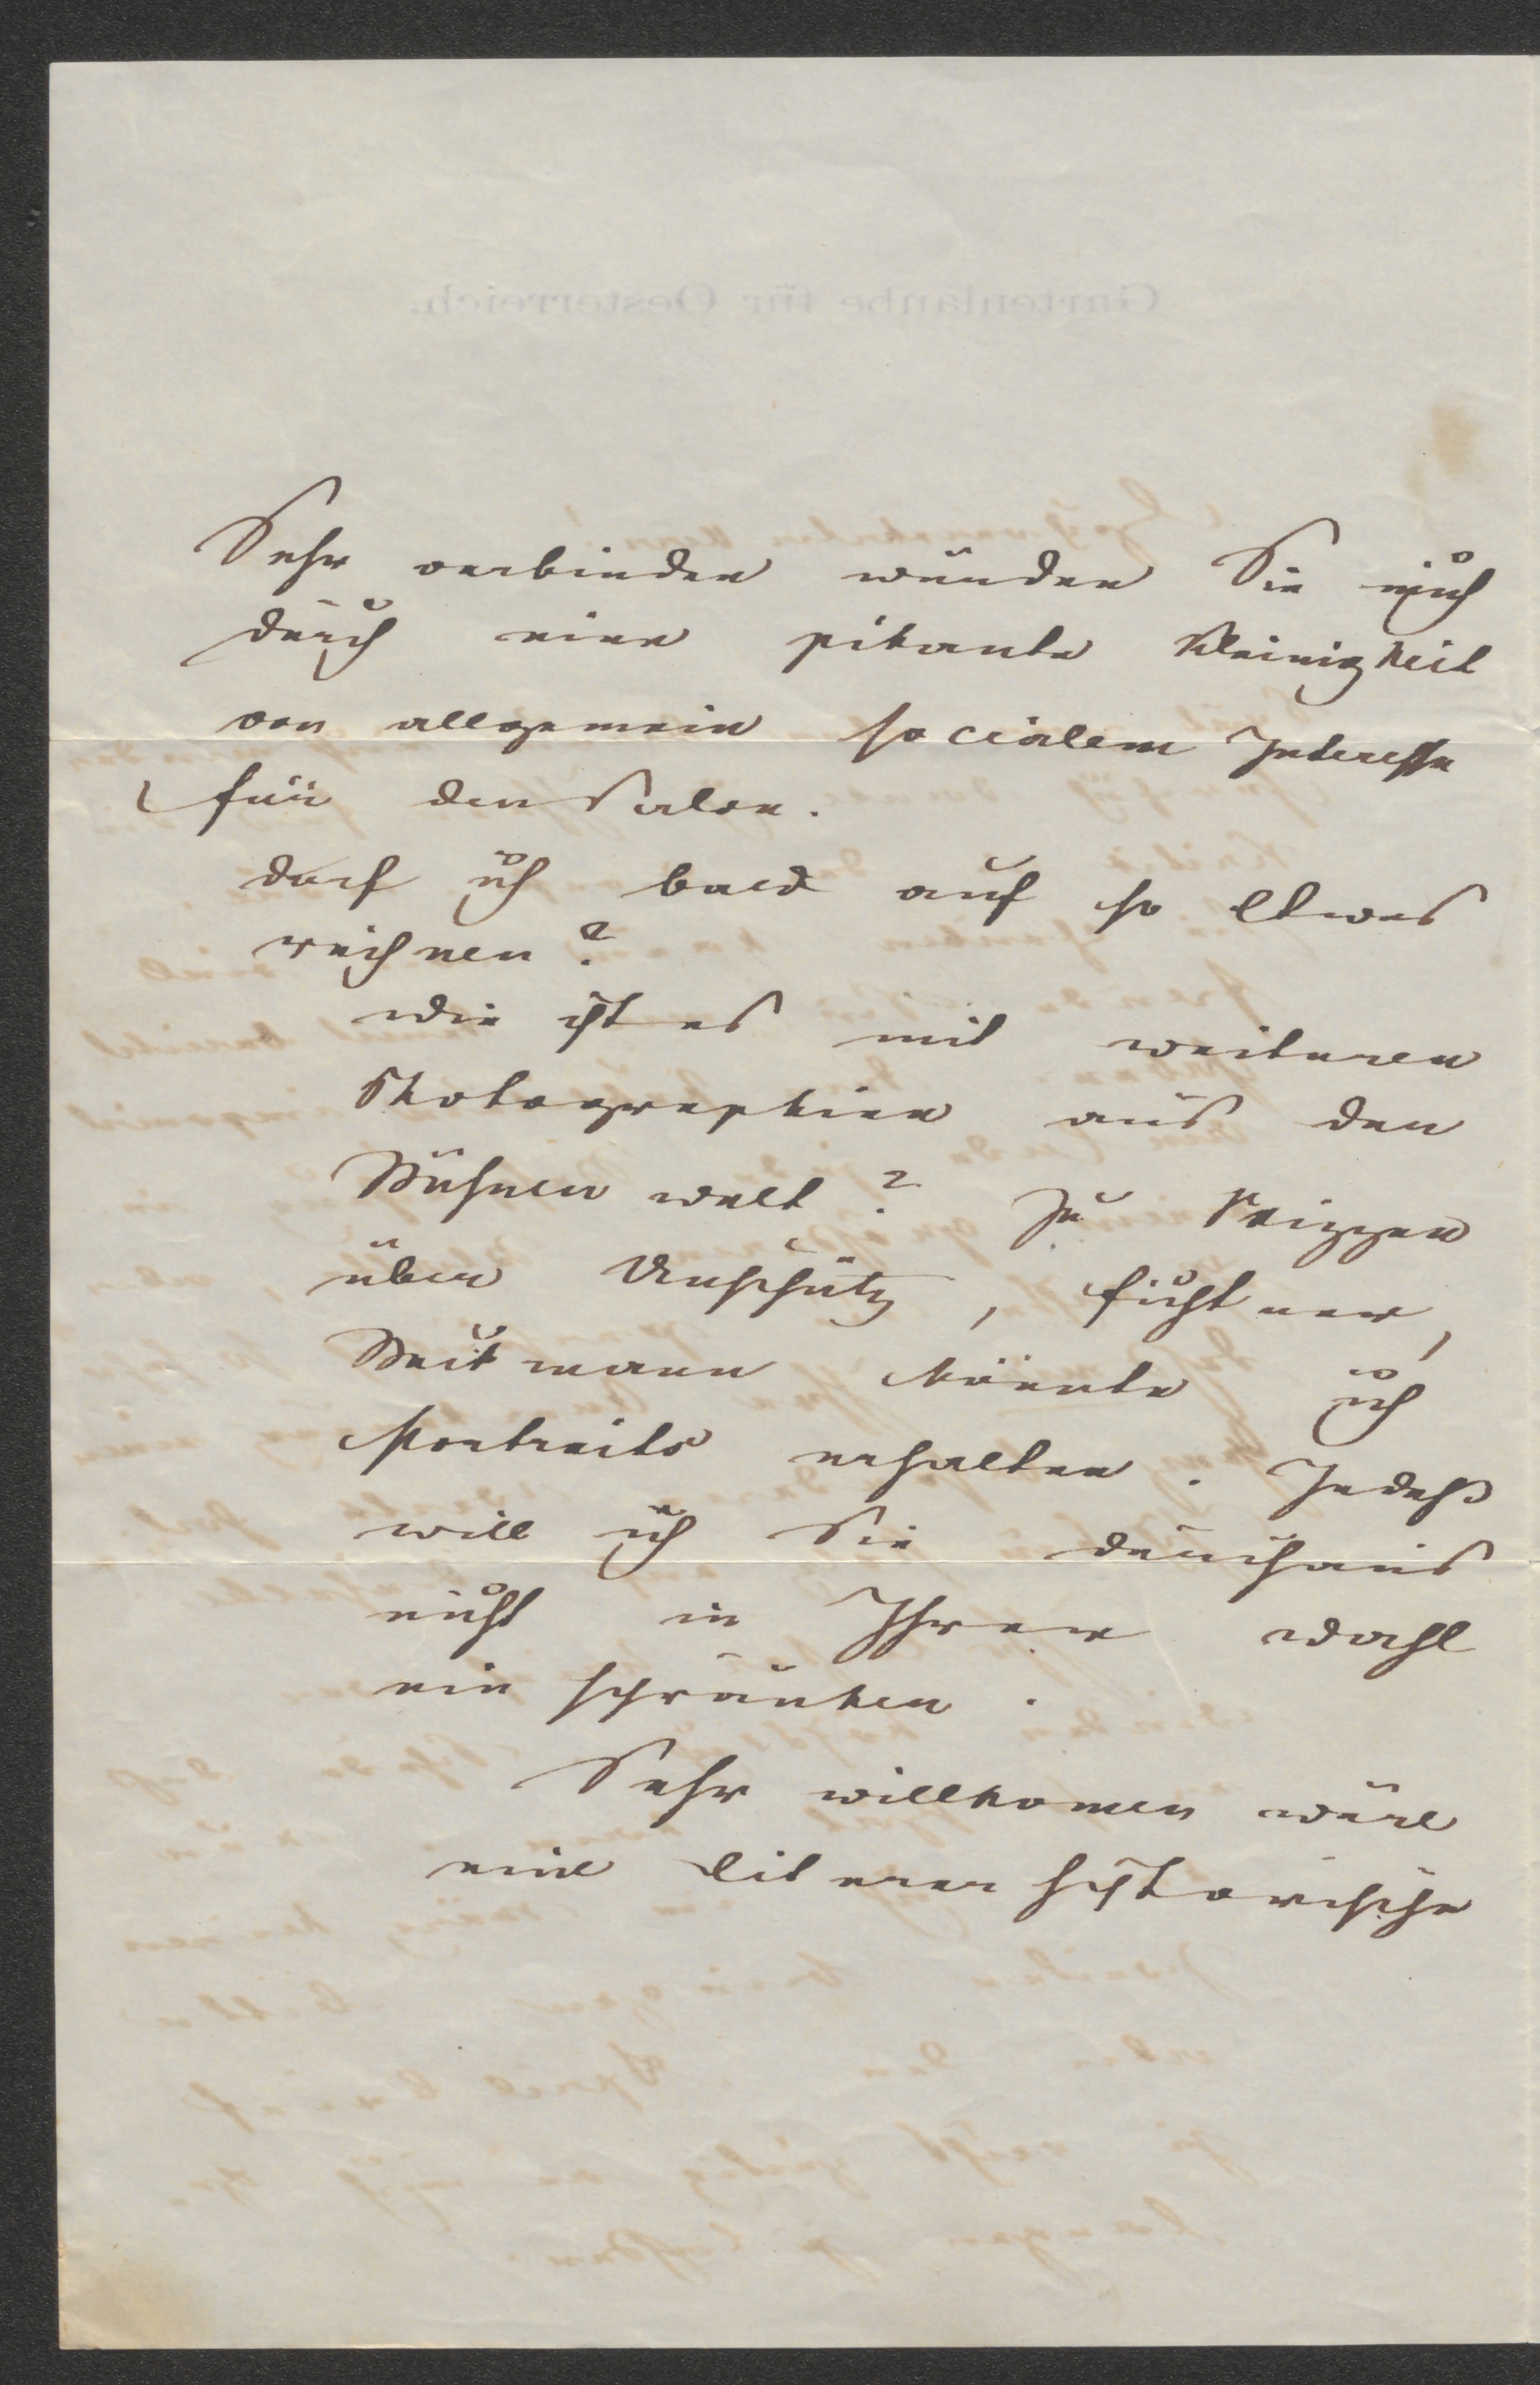 Sehr verbinden würden Sie mich
durch eine pikante Kleinigkeit
von allgemein socialem Interesse
für den Salon.
Darf ich bald auf so Etwas
rechnen?
Wie ist es mit weiteren
Photographien aus der
Bühnenwelt? Zu Skizzen
über Anschütz, Fichtner,
könnte ich
Portraits erhalten. Indeß
will ich Sie durchaus
nicht in Ihrer Wahl
einschränken.
Sehr willkomen wäre
eine literarhistorische